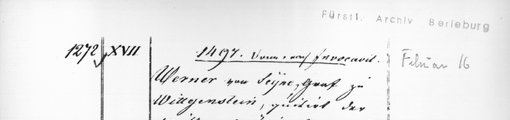 Fürstl. Archiv Berleburg
1272 XVII
1497. Donn. nach Invocavit.
Februar 16
Werner von Seyn, Graf zu
Wittgenstein, quitirt der